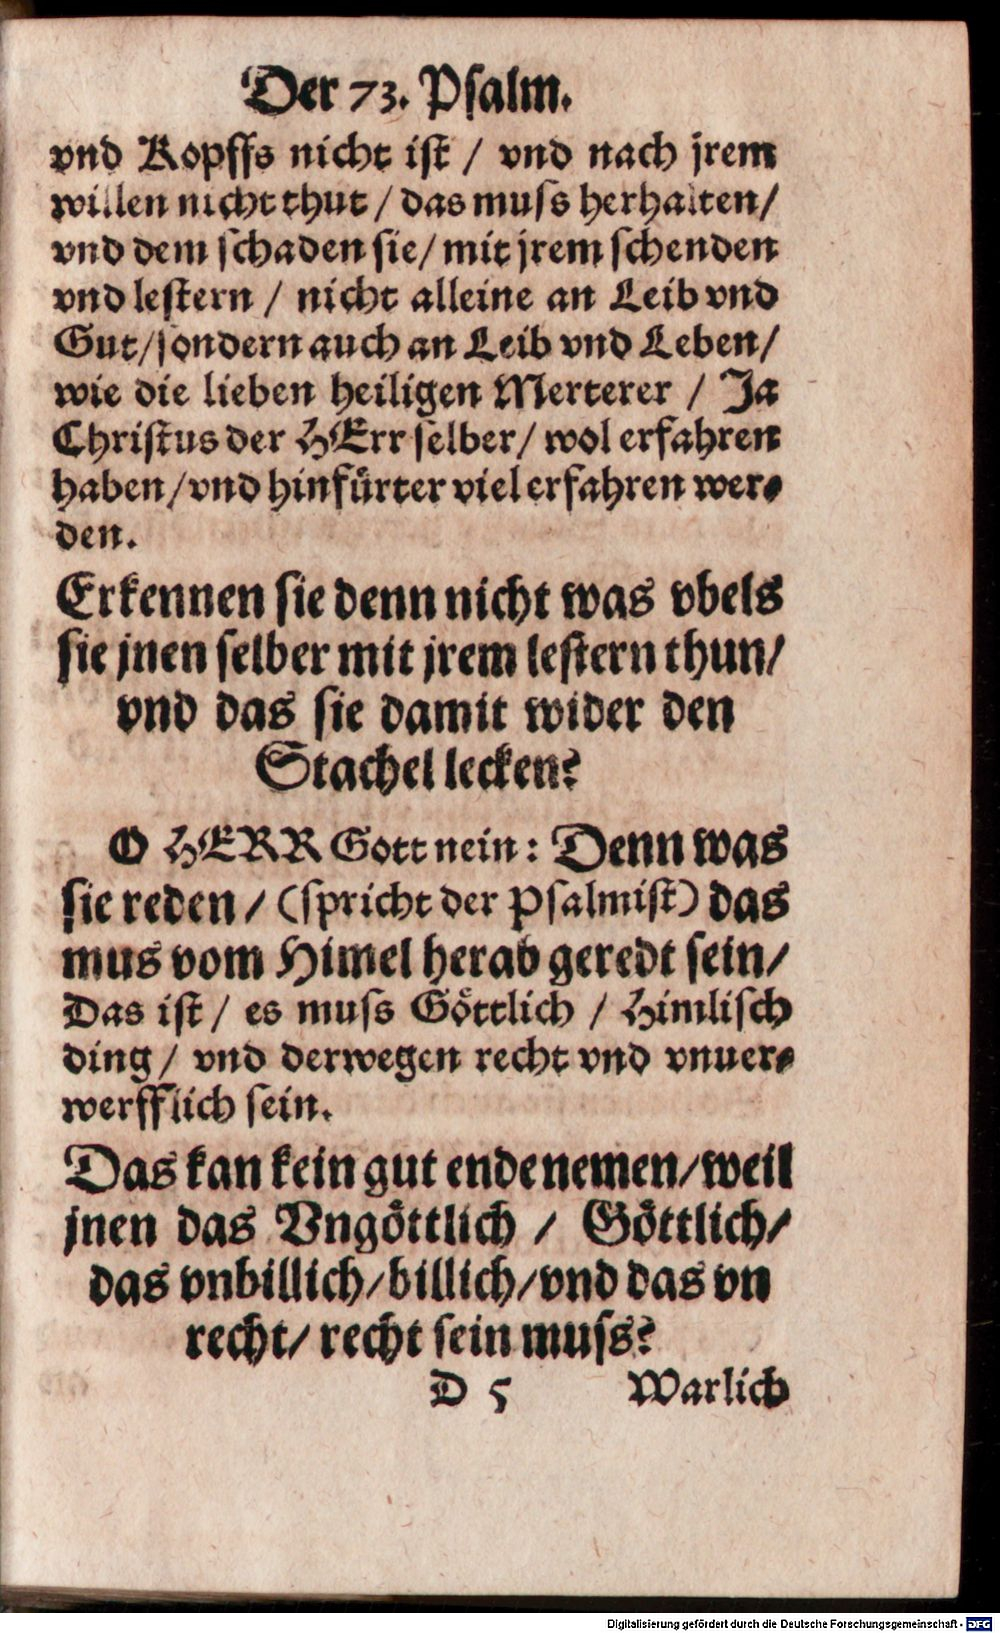 Der 73. Psalm.
vnd Kopffs nicht ist / vnd nach jrem
willen nicht thut / das muss herhalten/
vnd dem schaden sie/ mit jrem schenden
vnd lestern / nicht alleine an Leib vnd
Gut/sondern auch an Leib vnd Leben/
wie die lieben heiligen Merterer / Ja
Christus der HErr selber/ wol erfahren
haben/vnd hinfürter viel erfahren wer⸗
den.
Erkennen sie denn nicht was vbels
sie jnen selber mit jrem lestern thun/
vnd das sie damit wider den
Stachel lecken?
O HERR Gott nein: Denn was
sie reden/ (spricht der Psalmist) das
mus vom Himel herab geredt sein/
Das ist/ es muss Göttlich / Himlisch
ding/ vnd derwegen recht vnd vnuer⸗
werfflich sein.
Das kan kein gut ende nemen/weil
jnen das Vngöttlich / Göttlich/
das vnbillich/billich/vnd das vn
recht/ recht sein muss?
D 5 Warlich
Digitalisierung gefördert durch die Deutsche Forschungsgemeinschaft - DFG